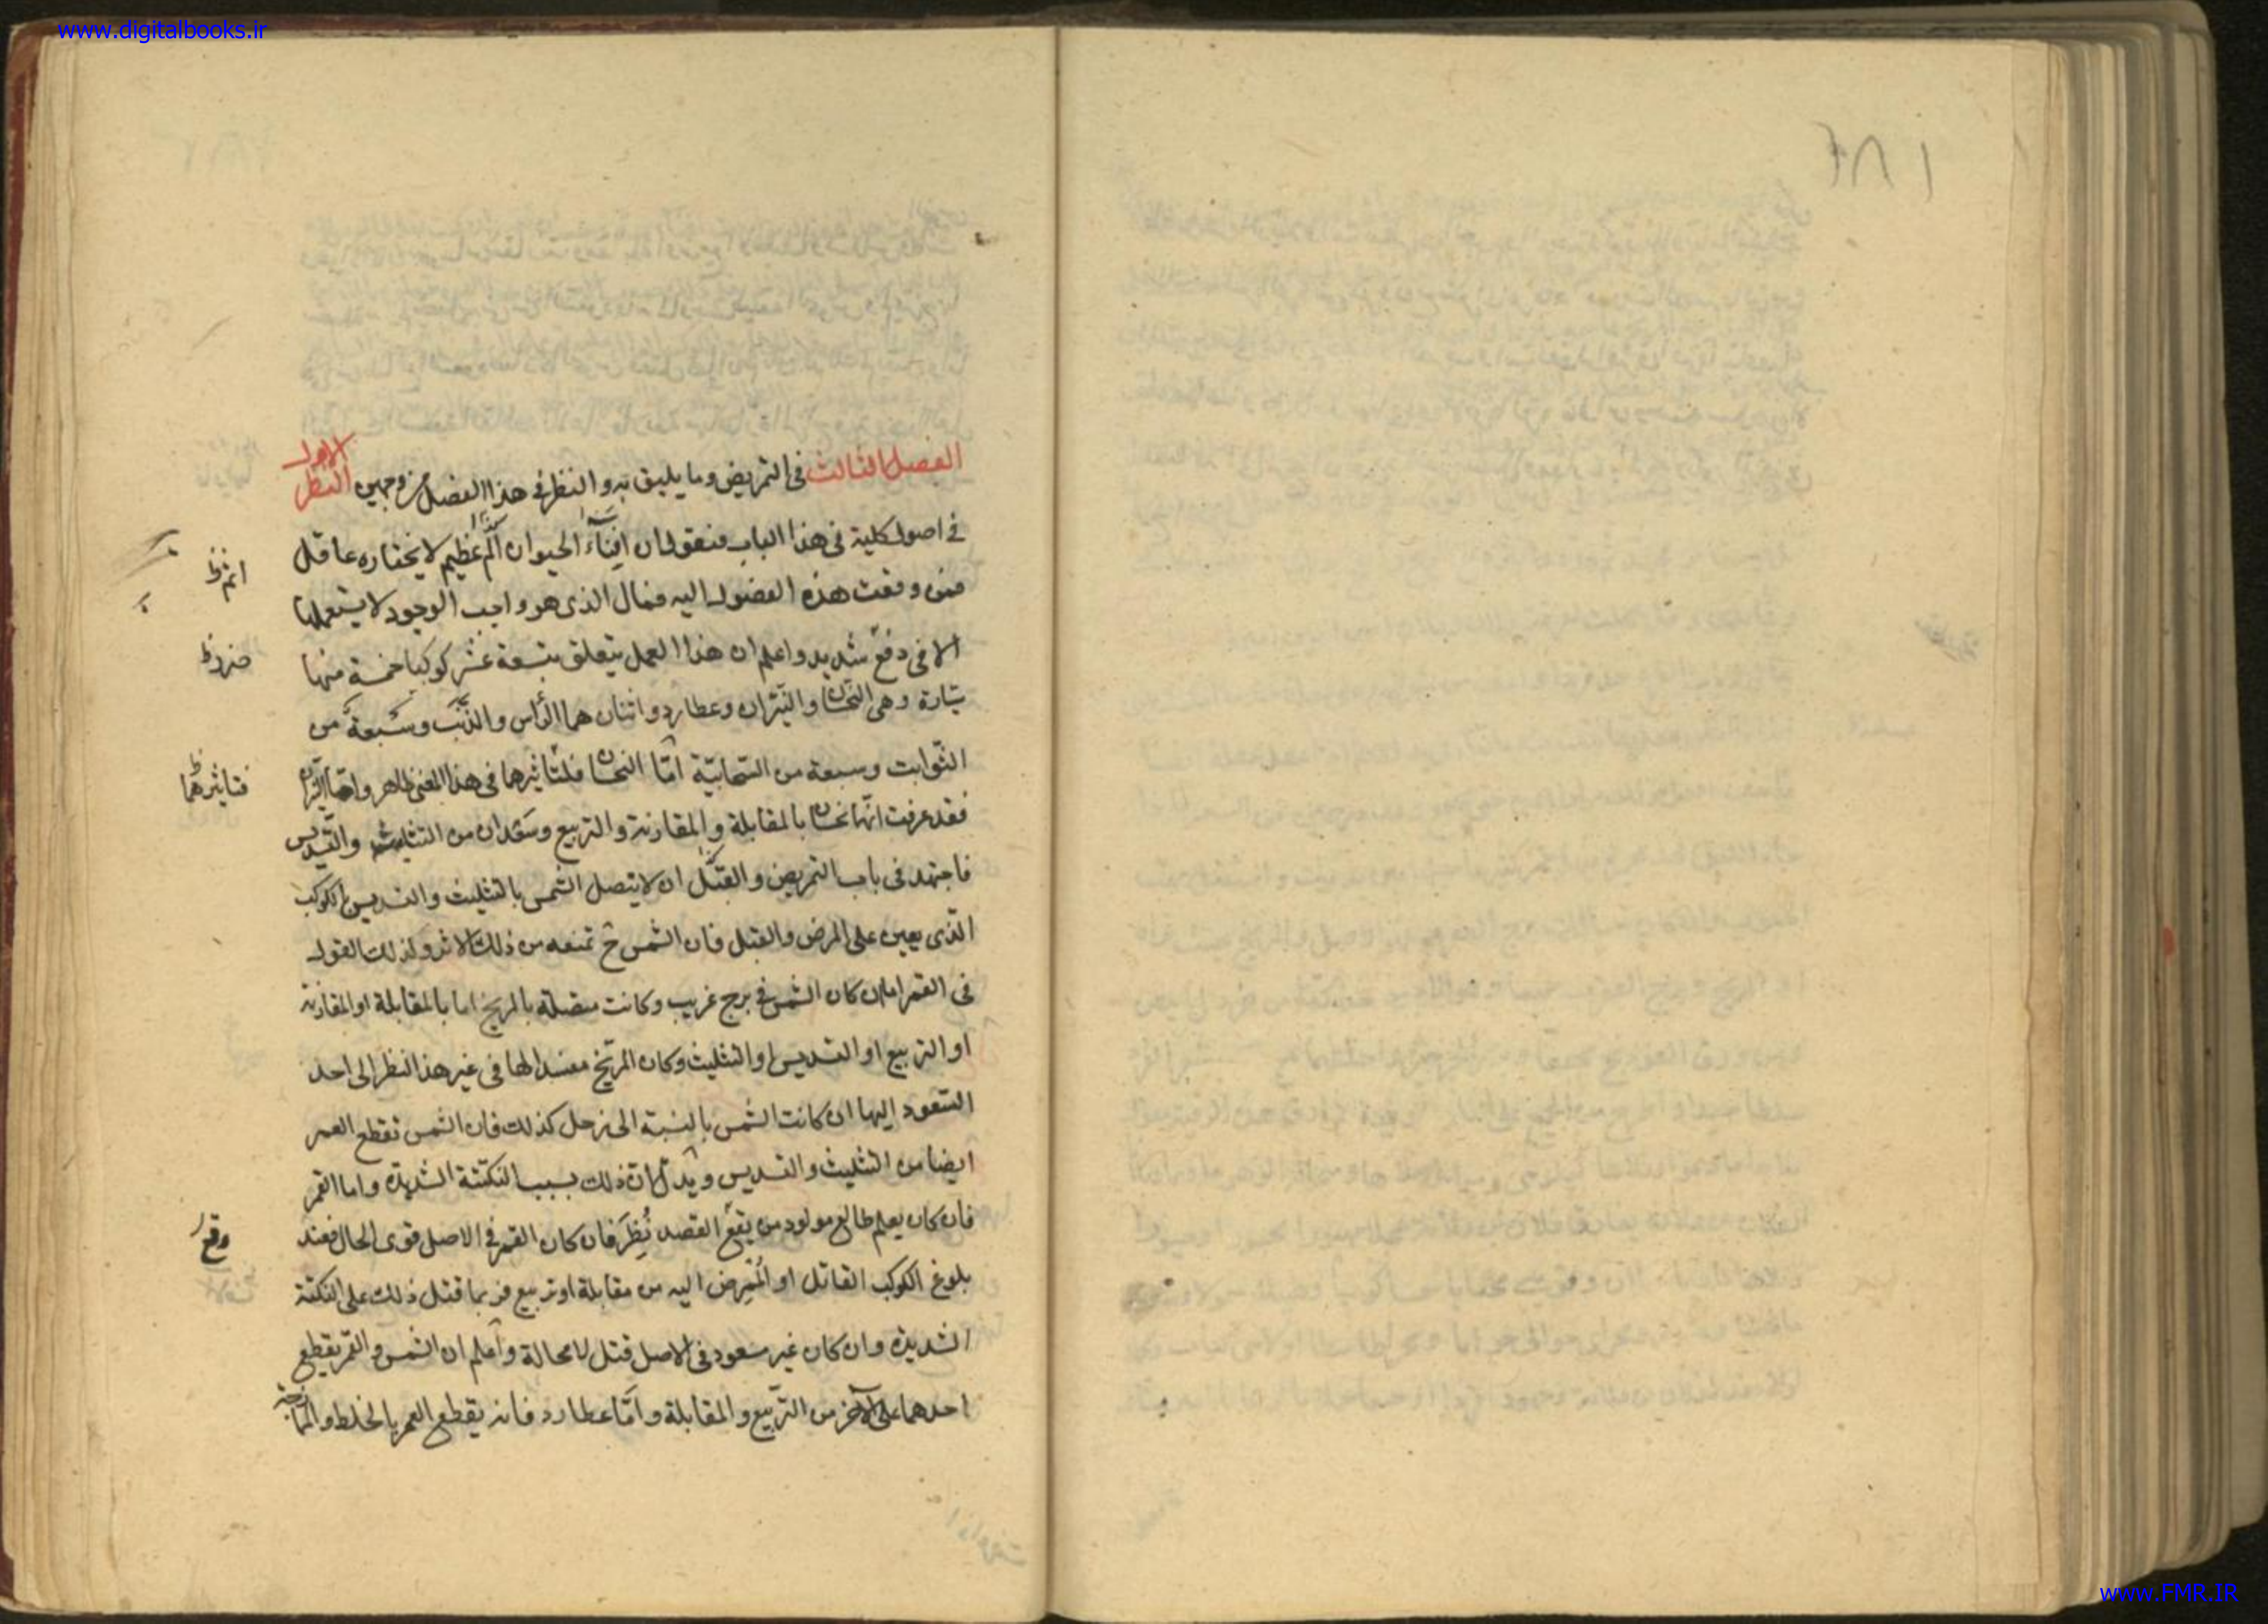 www.digitalbooks.ir
١٨٤
الفصل الثالث في التمريض وما يليق به والنظر في هذا الفصل من وجهين النظر الاول
في اصول كلية في هذا الباب فنقول ان افناء الحيوان الم عظيم لا يختاره عاقل
فمن وقعت هذه الفصول اليه الذى هو واجب الوجود لا يستعملها
الا في دفع شديد واعلم ان هذا العمل يتعلق بتسعة عشر كوكبا خمسة منها
سيارة وهى النحسان والنيران وعطارد واثنان هما الرأس والذنب وسبعة من
الثوابت وسبعة من السحابية امّا النحسان فلتأثيرهما في هذا المعنى ظاهر وامّا النيران
فقد عرفت انهما نحسان بالمقابلة والمقارنة والتربيع وسعدان من التثليث والتسديس
فاجتهد فى باب التمريض والقتل ان لا يتصل الشمس بالتثليث والتسديس الكوكب
الذى يعين على المرض والقتل فان الشمس ح تمنعه من ذلك الاثر وكذلك القول
في القمر اما ان كان الشمس في برج غريب وكانت متصلة بالمريخ اما بالمقابلة او المقارنة
او التربيع او التسديس او التثليث وكان المريخ مفسدا لها فى غير هذا النظر الى احد
السعود اليها ان كانت الشمس بالنسبة الى زحل كذلك فان الشمس تقطع العمر
ايضا من التثليث والتسديس ذلك بسبب النكتة الشديدة واما القمر
فان كان يعلم طالع مولود من يقع القصد نُظِرَ فان كان القمر في الاصل قوى الحال فعند
بلوغ الكوكب القاتل او الممرض اليه من مقابلة او تربيع فربما قتل ذلك على النكتة
الشديدة وان كان غير مسعود فى الاصل قتل لا محالة واعلم ان الشمس والقمر يقطع
احدهما على الآخر من التربيع والمقابلة وامّا عطارد فانه يقطع العمر بالخلط والممازجة
فتاثيرهما
وقع
www.FMR.IR